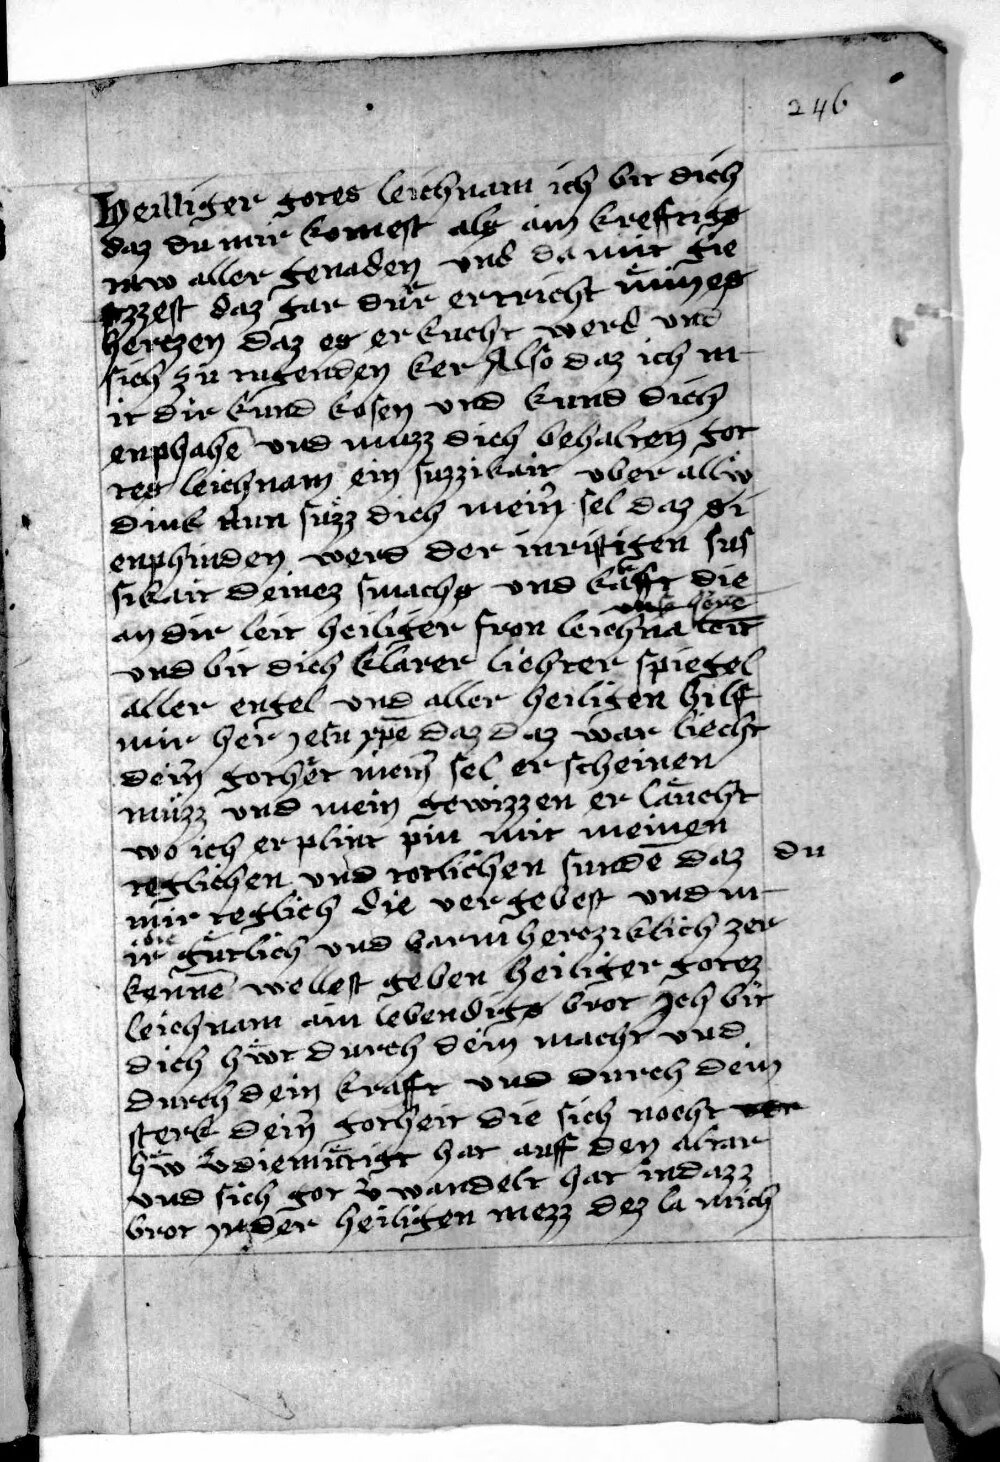 246
Heilliger gotes leichnam ich bit dich
daz du mir komest als ain kreftigs
taw aller genaden und da mit gie
zzest daz gar dürr ertricht mines
hertzen daz es erkucht werd und
sich zu tugenden ker Also daz ich m
it dir kund kosen und kund dich
enphahē und muzz dich behalten got
tes leichnam ein suzzikait uber alliw
dink Nun suzz dich mein̄ sel daz si
enphinden werd der inristigen sus
sikait deinez smachs und kraft die
an dir leit heiliger fron leichna
und bit dich klarer liehter spiegel
aller engel und aller heiligen hilf
mir her jesu xpē daz daz war liecht
dein̄ gothet mein̄ sel erscheinen
müzz und mein gewizzen erläucht
wo ich erplint pin mit meinen
teglichen und totlichen sundē daz du
mir teglich die vergebest und m
ir die gütlich und barmhercziklich zer
kennē wellest geben heiliger gotez
leichnam ain lebendigs brot Ich bit
dich hẅt durch dein macht und
durch dein kraft und durch dein
sterk dein̄ gotheit die sich nocht
hẅ v̄diemütigt hat auff den altar
und sich got v̄wandelt hat in dazz
brot in der heiligen mezz dez la mich